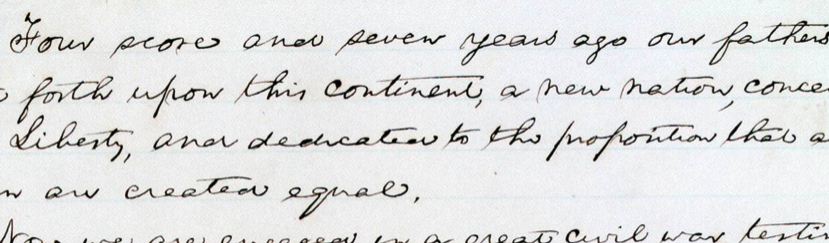 Four score and seven years ago our fathers
forth upon this continent, a new nation, conce
Liberty, and dedicated to the proposition that a
n are created equal.
Now we are engaged in a great civil war, testi